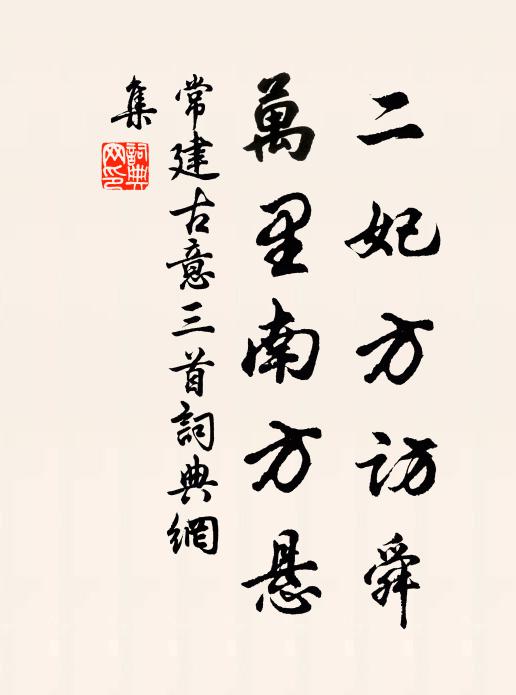 二妃方访舜
萬里南方悬
常建古意三首詞典網
集
詞典網印